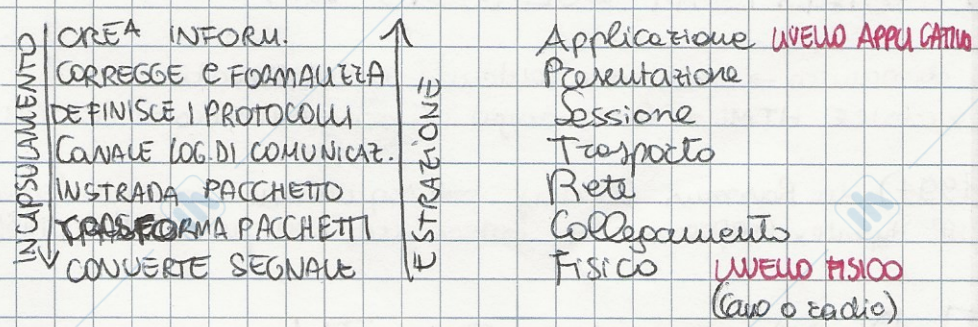 INCAPSULAMENTO
CREA INFORM.
CORREGGE e FORMALIZZA
DEFINISCE I PROTOCOLLI
CANALE LOG. DI COMUNICAZ.
INSTRADA PACCHETTO
TRASFORMA PACCHETTI
CONVERTE SEGNALE
ESTRAZIONE
Applicazione LIVELLO APPLICATIVO
Presentazione
Sessione
Trasporto
Rete
Collegamento
Fisico LIVELLO FISICO
(cavo o radio)